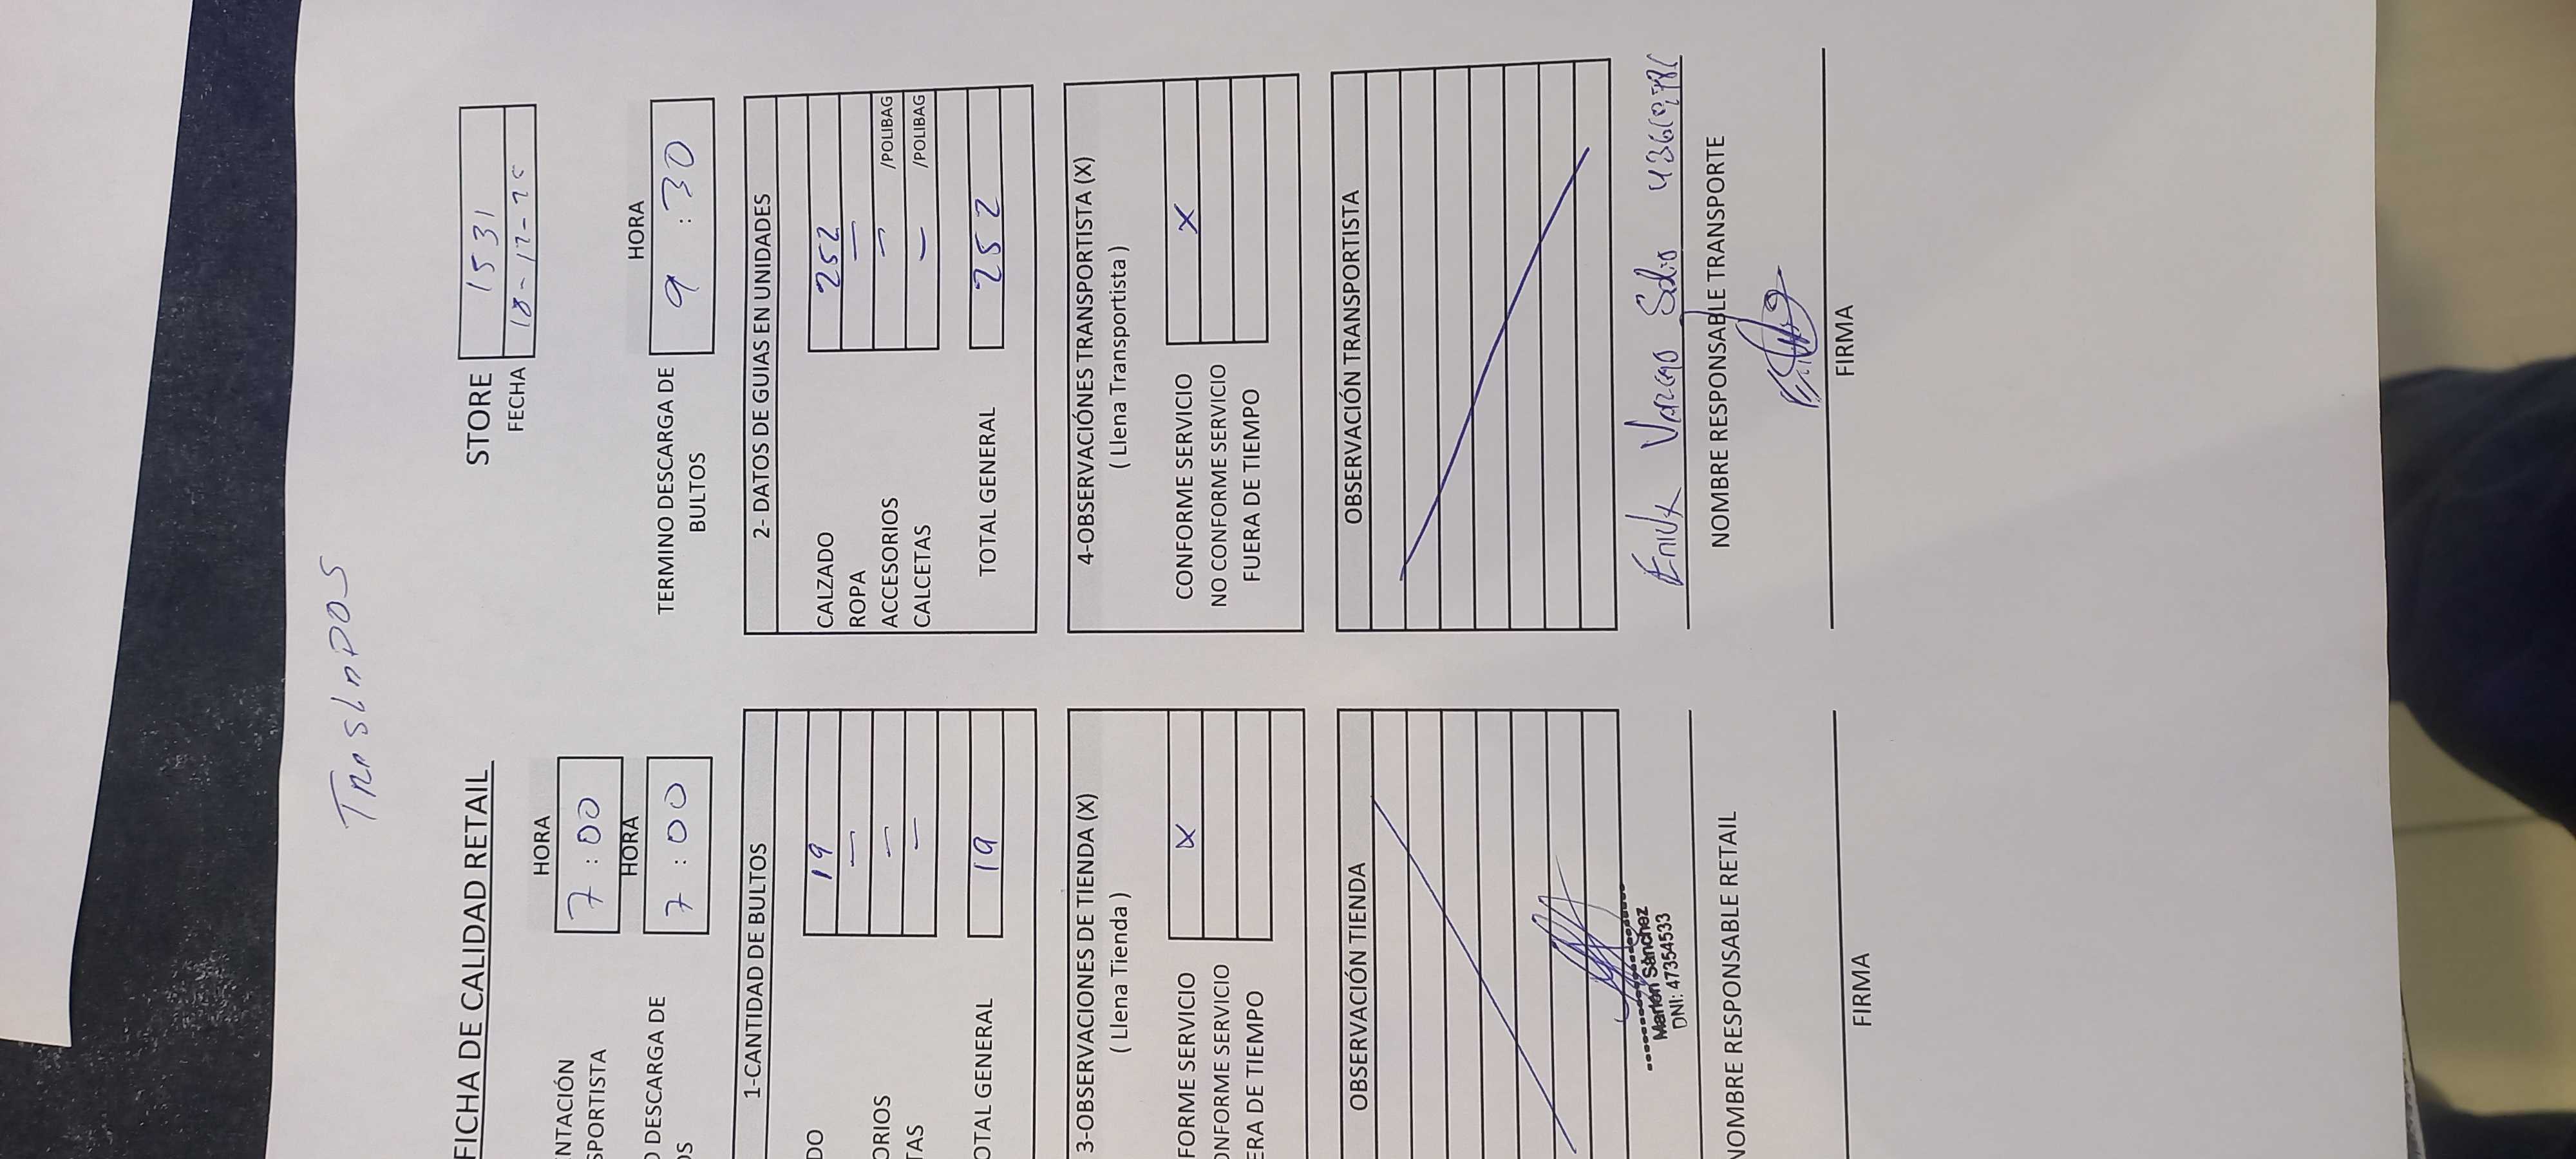 FICHA DE CALIDAD RETAIL
STORE 1531
FECHA 18-12-25
NTACIÓN
SPORTISTA
HORA
7:00
DESCARGA DE
OS
HORA
7:00
TERMINO DESCARGA DE
BULTOS
HORA
9:30
1-CANTIDAD DE BULTOS
DO 19
—
ORIOS —
TAS —
OTAL GENERAL 19
2- DATOS DE GUIAS EN UNIDADES
CALZADO 252
ROPA —
ACCESORIOS — /POLIBAG
CALCETAS — /POLIBAG
TOTAL GENERAL 252
3-OBSERVACIONES DE TIENDA (X)
( Llena Tienda )
FORME SERVICIO X
ONFORME SERVICIO
ERA DE TIEMPO
4-OBSERVACIÓNES TRANSPORTISTA (X)
( Llena Transportista )
CONFORME SERVICIO X
NO CONFORME SERVICIO
FUERA DE TIEMPO
OBSERVACIÓN TIENDA
Marlon Sanchez
DNI: 47354533
NOMBRE RESPONSABLE RETAIL
FIRMA
OBSERVACIÓN TRANSPORTISTA
NOMBRE RESPONSABLE TRANSPORTE
FIRMA